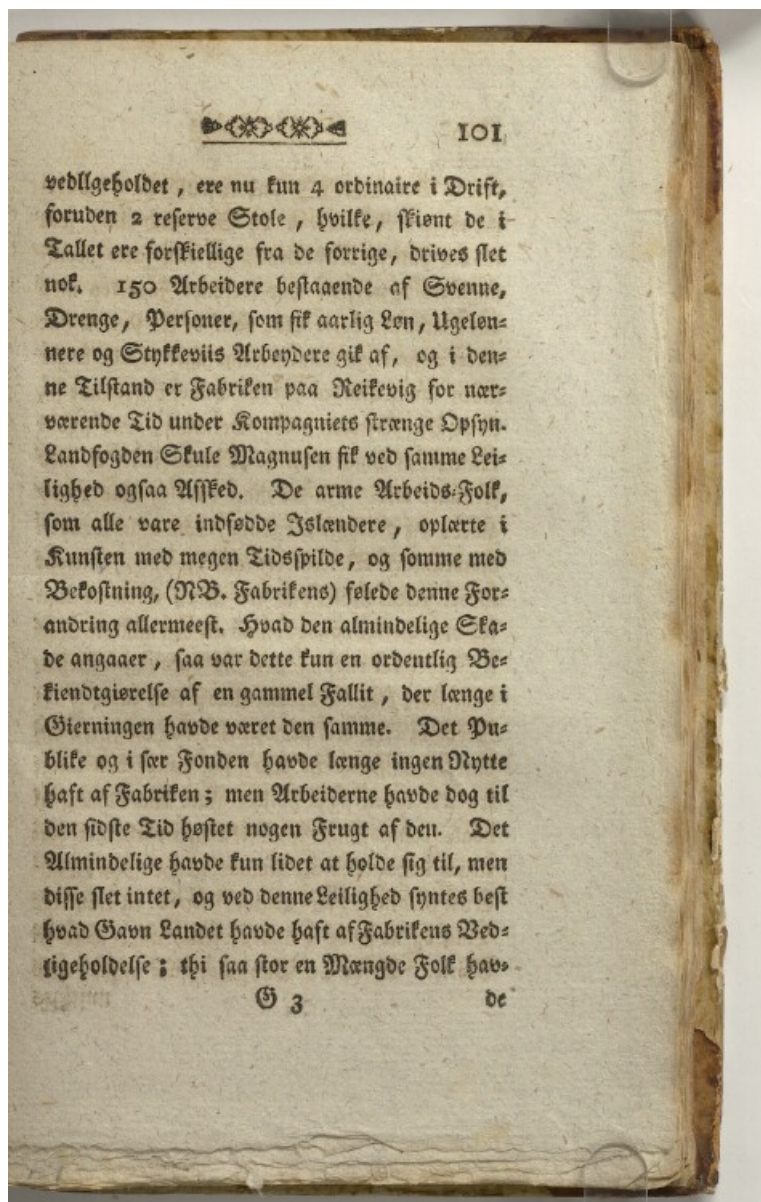 101
vedllgeholdet, ere nu kun 4 ordinaire i Drift,
foruden 2 reserve Stole, hvilke, skiønt de i
Tallet ere forskiellige fra de forrige, drives slet
nok. 150 Arbeidere bestaaende af Svenne,
Drenge, Personer, som fik aarlig Løn, Ugeløn-
nere og Stykkeviis Arbeydere gik af, og i den-
ne Tilstand er Fabriken paa Reikevig for nær-
værende Tid under Kompagniets strænge Opsyn.
Landfogden Skule Magnusen fik ved samme Lei-
lighed ogsaa Afsked. De arme Arbeids-Folk,
som alle vare indfødde Islændere, oplærte i
Kunsten med megen Tidsspilde, og somme med
Bekostning, (NB. Fabrikens) følede denne For-
andring allermeest. Hvad den almindelige Ska-
de angaaer, saa var dette kun en ordentlig Be-
kiendtgiørelse af en gammel Fallit, der længe i
Gierningen havde været den samme. Det Pu-
blike og i sær Fonden havde længe ingen Nytte
haft af Fabriken; men Arbeiderne havde dog til
den sidste Tid høstet nogen Frugt af den. Det
Almindelige havde kun lidet at holde sig til, men
disse slet intet, og ved denne Leilighed syntes best
hvad Gavn Landet havde haft af Fabrikens Ved-
ligeholdelse; thi saa stor en Mængde Folk hav-
G 3 de